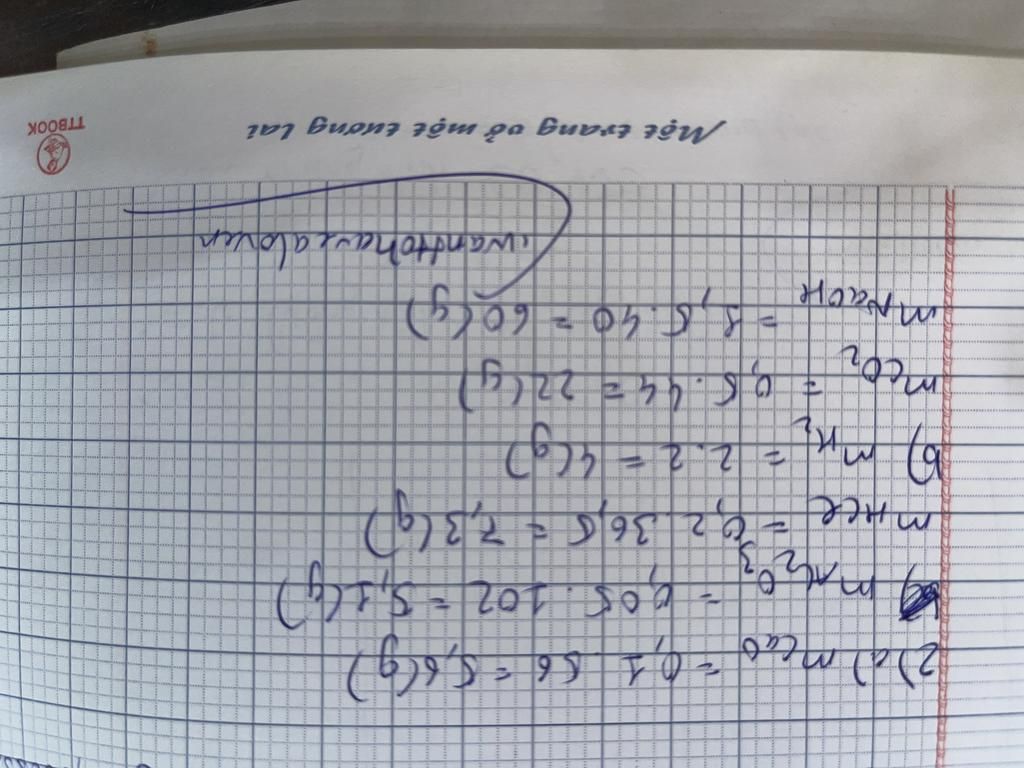 2) a) mCaO = 0,1 . 56 = 5,6 (g)
mAl2O3 = 0,05 . 102 = 5,1 (g)
mHCl = 0,2 . 36,5 = 7,3 (g)
b) mH2 = 2 . 2 = 4 (g)
mCO2 = 0,5 . 44 = 22 (g)
mNaOH = 1,5 . 40 = 60 (g)
iwanttohavealover
Một trang vở một tương lai
TTBOOK